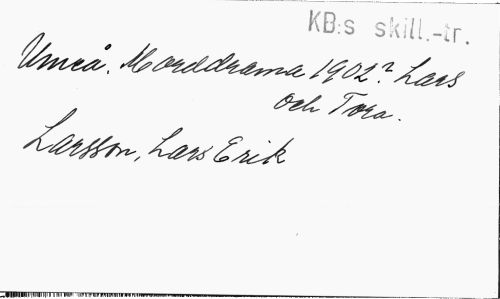 KB:s skill.-tr.
Umeå. Morddrama 1902? Lars
och Tora.
Larsson, Lars Erik